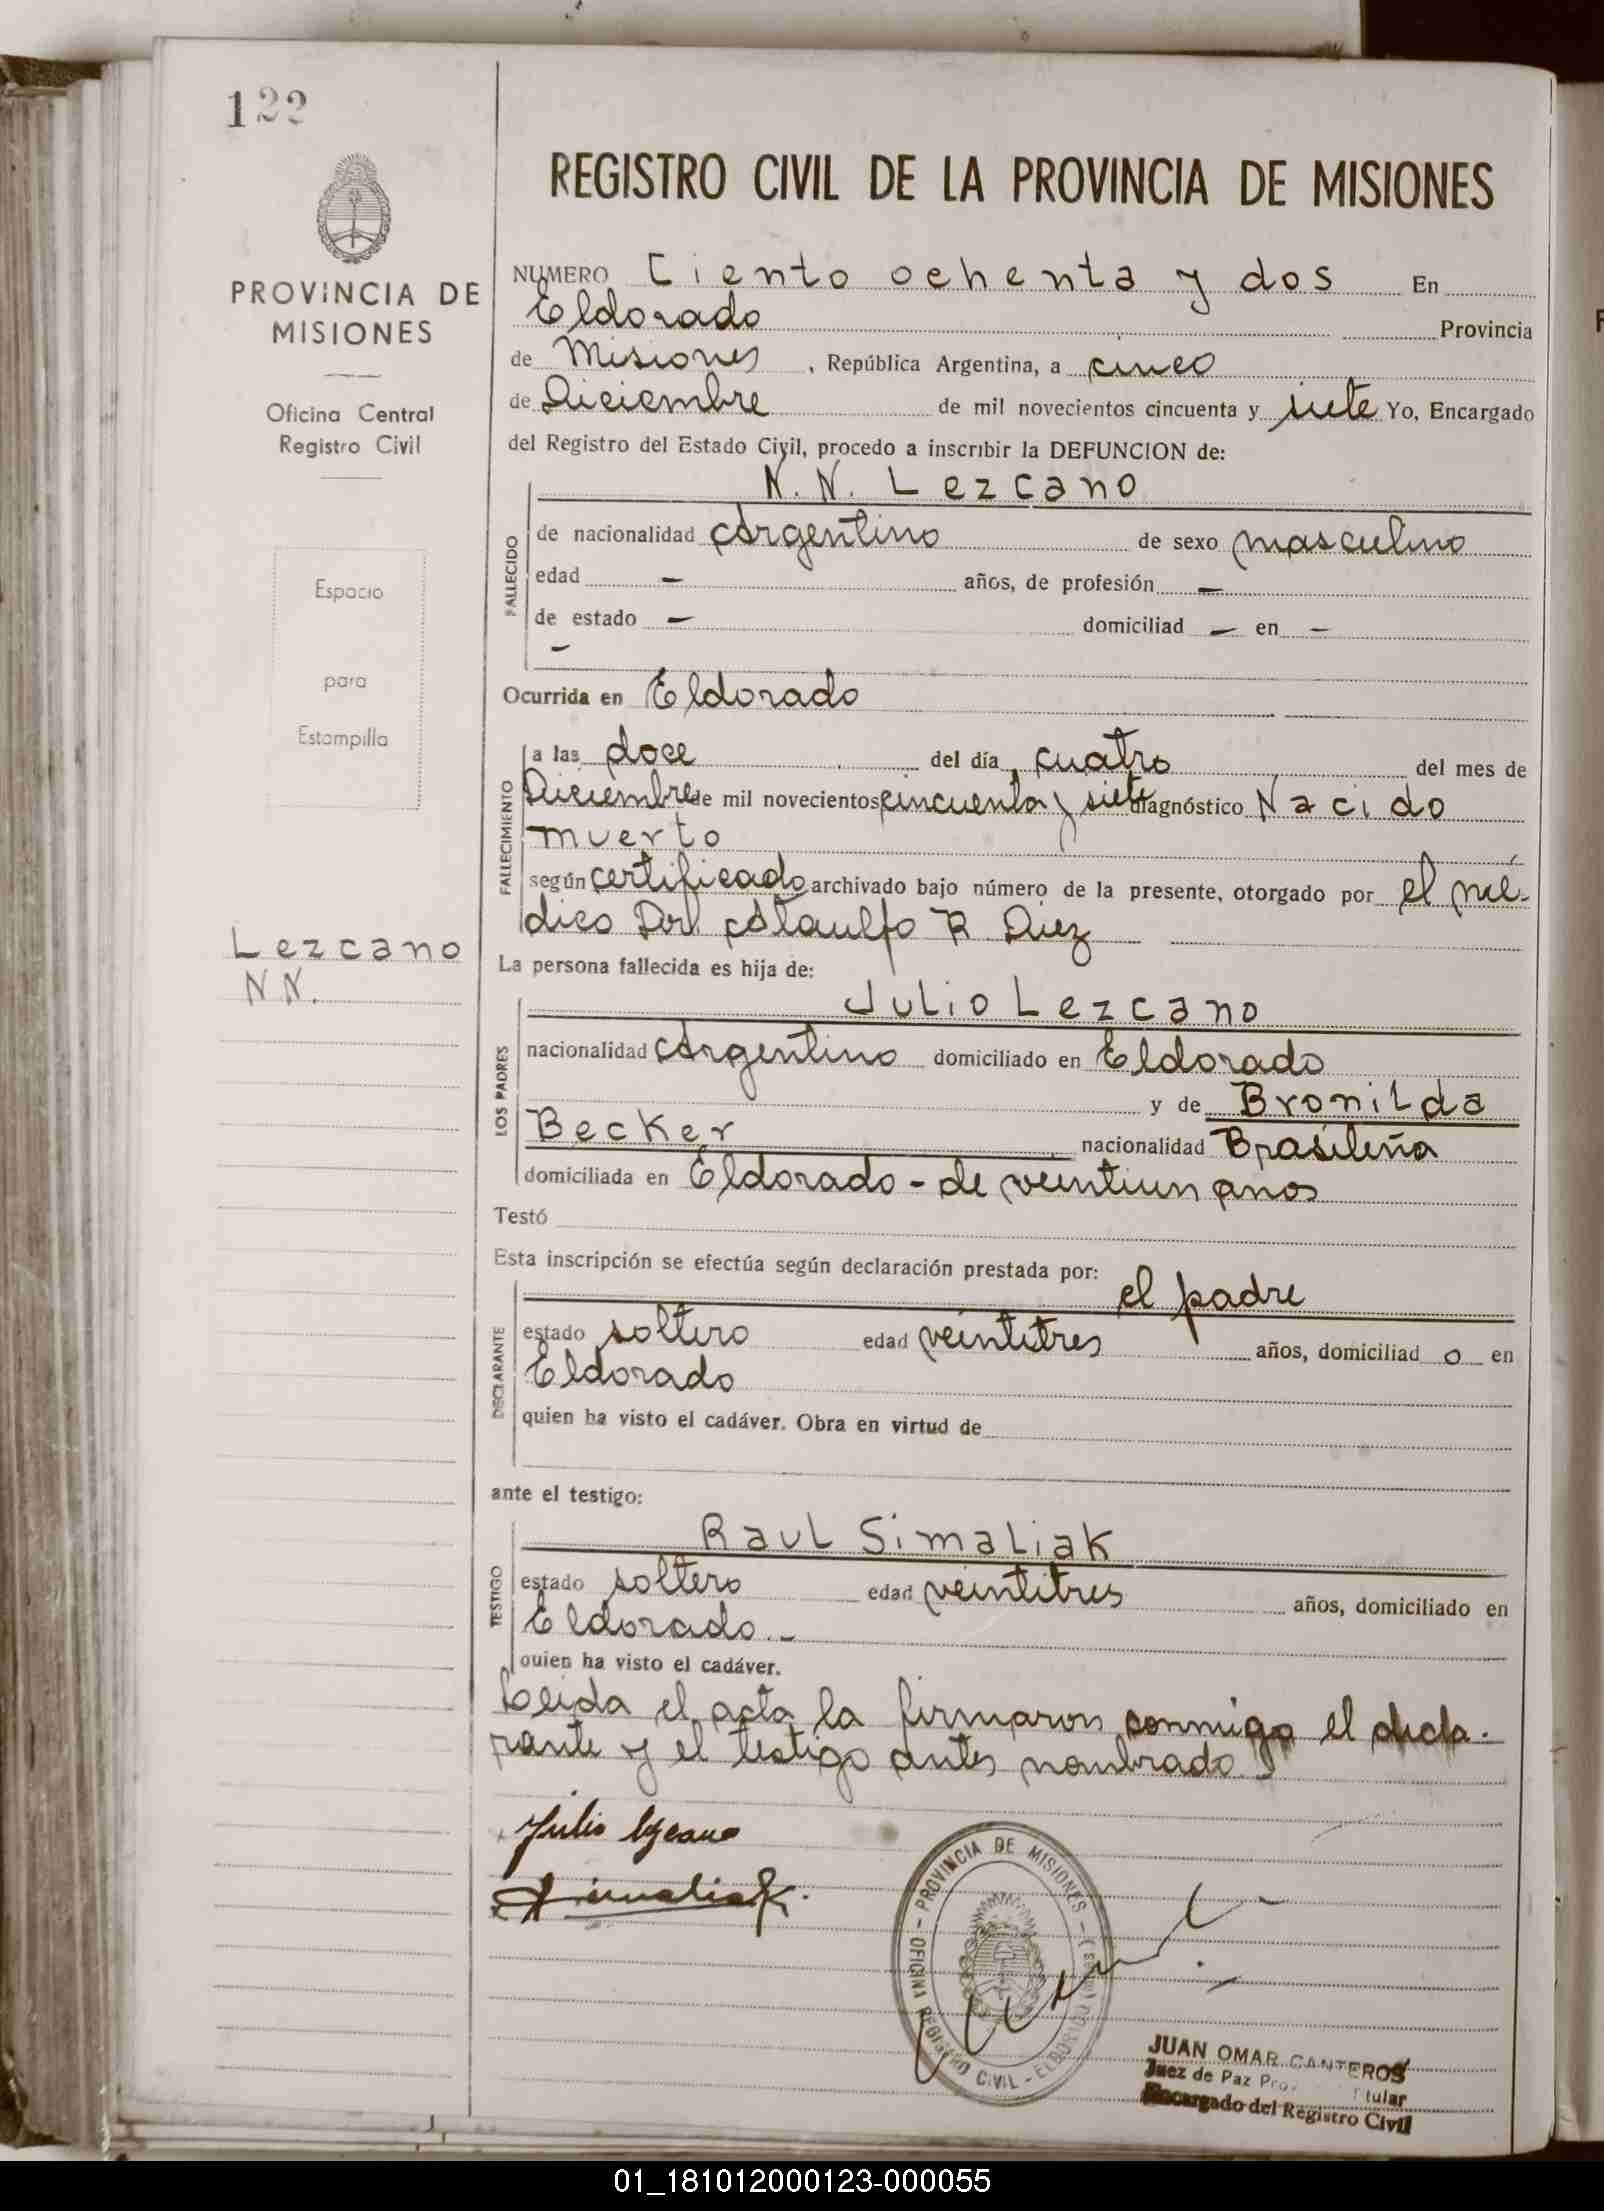 122
REGISTRO CIVIL DE LA PROVINCIA DE MISIONES
PROVINCIA DE
MISIONES
Oficina Central
Registro Civil
Espacio
para
Estampilla
Lezcano
N N.
NUMERO Ciento ochenta y dos En
Eldorado Provincia
de Misiones , República Argentina, a cinco
de Diciembre de mil novecientos cincuenta y siete Yo, Encargado
del Registro del Estado Civil, procedo a inscribir la DEFUNCION de:
N. N. Lezcano
FALLECIDO
de nacionalidad Argentino de sexo masculino
edad — años, de profesión —
de estado — domiciliad — en —
—
Ocurrida en Eldorado
FALLECIMIENTO
a las doce del día cuatro del mes de
Diciembre de mil novecientos cincuenta y siete diagnóstico Nacido
muerto
según certificado archivado bajo número de la presente, otorgado por el mé-
dico Dor Ataulfo R Diez
La persona fallecida es hija de:
LOS PADRES
Julio Lezcano
nacionalidad Argentino domiciliado en Eldorado
y de Bronilda
Becker nacionalidad Brasileña
domiciliada en Eldorado - de veintiun anos
Testó
Esta inscripción se efectúa según declaración prestada por:
el padre
DECLARANTE
estado soltero edad veintitres años, domiciliad o en
Eldorado
quien ha visto el cadáver. Obra en virtud de
ante el testigo:
TESTIGO
Raul Simaliak
estado soltero edad veintitres años, domiciliado en
Eldorado.-
quien ha visto el cadáver.
Leida el acta la firmaron conmigo el decla-
rante y el testigo antes nombrado
Julio Lezcano
Simaliak.
PROVINCIA DE MISIONES - OFICINA REGISTRO CIVIL - ELDORADO
JUAN OMAR CANTEROS
Juez de Paz Titular
Encargado del Registro Civil
01_181012000123-000055